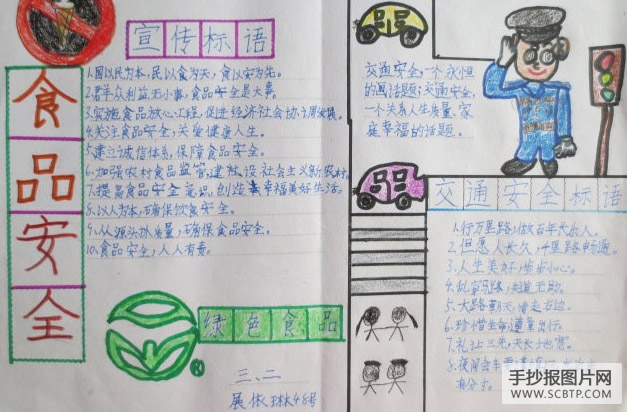 食品安全
宣传标语
1.国以民为本,民以食为天,食以安为先。
2.群众利益无小事,食品安全是大事
3.实施食品放心工程,促进经济社会协调发展。
4.关注食品安全,关爱健康人生。
5.建立诚信体系,保障食品安全。
6.加强农村食品监管,建设社会主义新农村。
7.提高食品安全意识,创造幸福美好生活。
8.以人为本,确保饮食安全。
9.从源头抓质量,确保食品安全。
10.食品安全,人人有责。
绿色食品
三、二
48号
交通安全,一个永恒
的话题;交通安全,
一个关系人生质量、家
庭幸福的话题。
交通安全标语
1.行万里路,做百年长乐人。
2.但愿人长久,千里路畅通。
3.人生美好,步步小心。
5.大路朝天,请走右边。
6.珍惜生命遵章出行。
7.礼让三先,天长地久。
手抄报图片网
WWW.SCBTP.COM